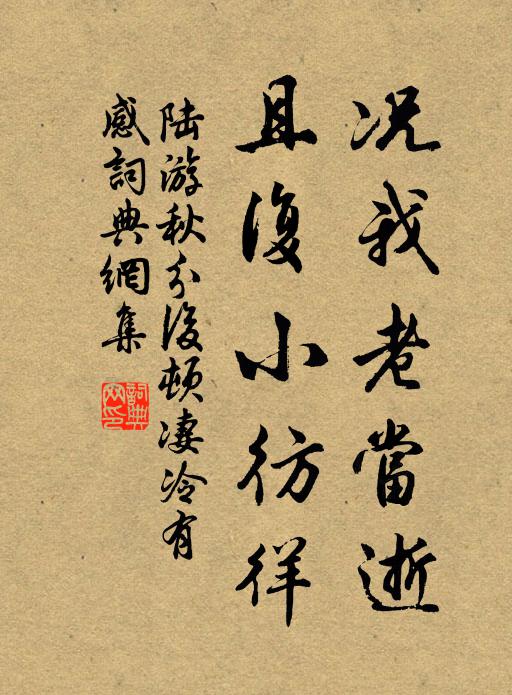 况我老當逝
且復小彷徉
陆游秋分後頓凄冷有
感詞典網集
詞典
网印